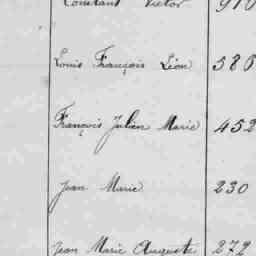 Constant Victor 910
Louis François Léon 586
François Julien Marie 452
Jean Marie 230
Jean Marie Auguste 272